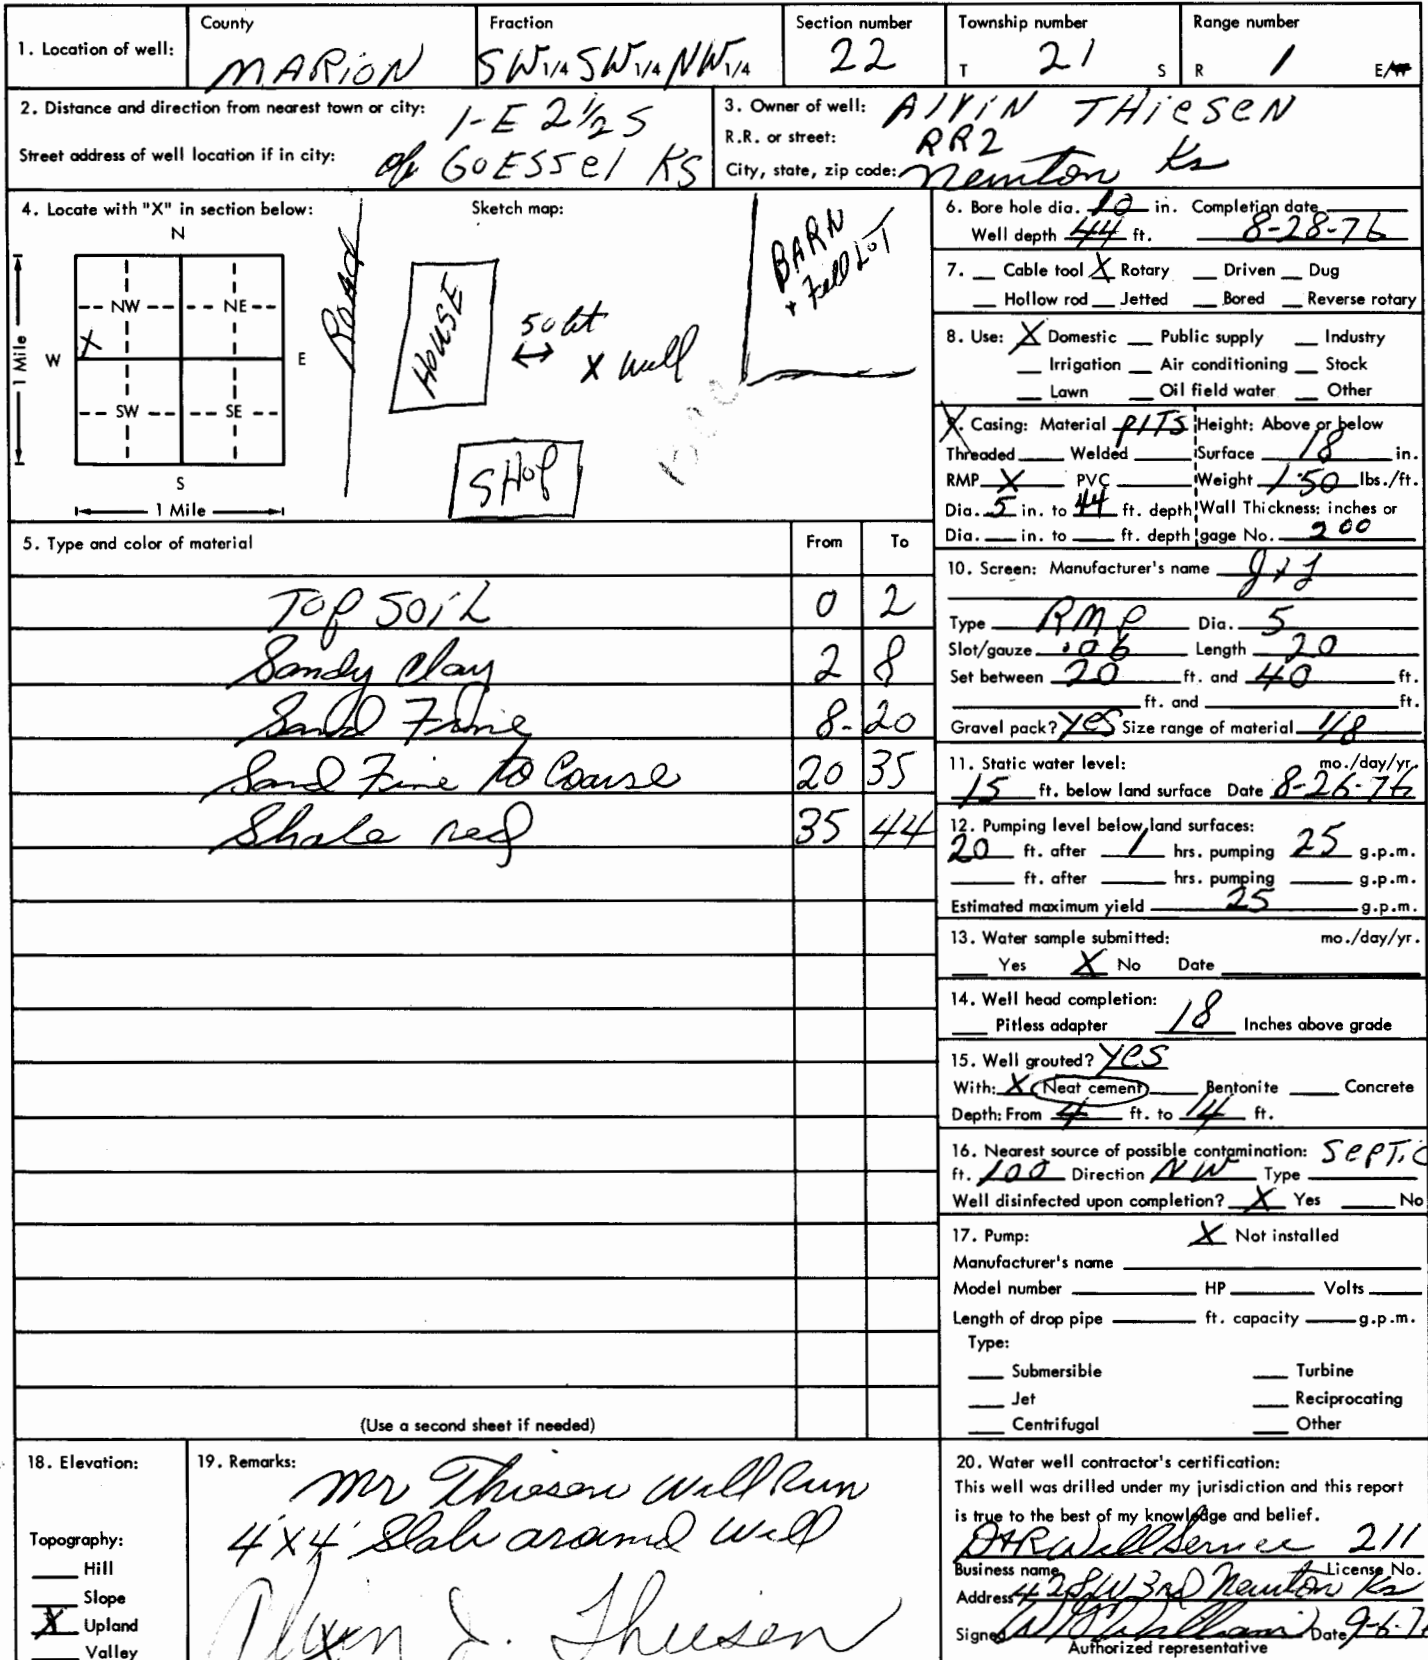 1. Location of well: County MARION Fraction SW 1/4 SW 1/4 NW 1/4 Section number 22 Township number T 21 S Range number R 1 E/W
2. Distance and direction from nearest town or city: 1-E 2 1/2 S
Street address of well location if in city: of GOESSEL KS
3. Owner of well: Alvin THiesen
R.R. or street: RR2
City, state, zip code: Newton Ks
4. Locate with "X" in section below: Sketch map:
N
NW NE
X
W E
SW SE
S
1 Mile
1 Mile
Road
HOUSE
50 ft
X Well
BARN
+ Feed LOT
SHOP
5. Type and color of material From To
Top Soil 0 2
Sandy Clay 2 8
Sand Fine 8- 20
Sand Fine to Coarse 20 35
Shale red 35 44
(Use a second sheet if needed)
6. Bore hole dia. 10 in. Completion date
Well depth 44 ft. 8-28-76
7. Cable tool X Rotary Driven Dug
Hollow rod Jetted Bored Reverse rotary
8. Use: X Domestic Public supply Industry
Irrigation Air conditioning Stock
Lawn Oil field water Other
9. Casing: Material Height: Above or below
Threaded Welded Surface 18 in.
RMP X PVC Weight 1.50 lbs./ft.
Dia. 5 in. to 44 ft. depth Wall Thickness: inches or
Dia. in. to ft. depth gage No. 200
10. Screen: Manufacturer's name
Type RMP Dia. 5
Slot/gauze .06 Length 20
Set between 20 ft. and 40 ft.
ft. and ft.
Gravel pack? Yes Size range of material 1/8
11. Static water level: mo./day/yr.
15 ft. below land surface Date 8-26-76
12. Pumping level below land surfaces:
20 ft. after 1 hrs. pumping 25 g.p.m.
ft. after hrs. pumping g.p.m.
Estimated maximum yield 25 g.p.m.
13. Water sample submitted: mo./day/yr.
Yes X No Date
14. Well head completion:
Pitless adapter 18 Inches above grade
15. Well grouted? Yes
With: X Neat cement Bentonite Concrete
Depth: From 4 ft. to 14 ft.
16. Nearest source of possible contamination: Septic
ft. 100 Direction NW Type
Well disinfected upon completion? X Yes No
17. Pump: X Not installed
Manufacturer's name
Model number HP Volts
Length of drop pipe ft. capacity g.p.m.
Type:
Submersible Turbine
Jet Reciprocating
Centrifugal Other
18. Elevation:
Topography:
Hill
Slope
X Upland
Valley
19. Remarks:
Mr Thiesen Will Run
4'x4' Slab around well
Alvin J. Thiesen
20. Water well contractor's certification:
This well was drilled under my jurisdiction and this report
is true to the best of my knowledge and belief.
D+R Well Service 211
Business name License No.
Address 428 W 3rd Newton Ks
Signed Date 9-6-7
Authorized representative